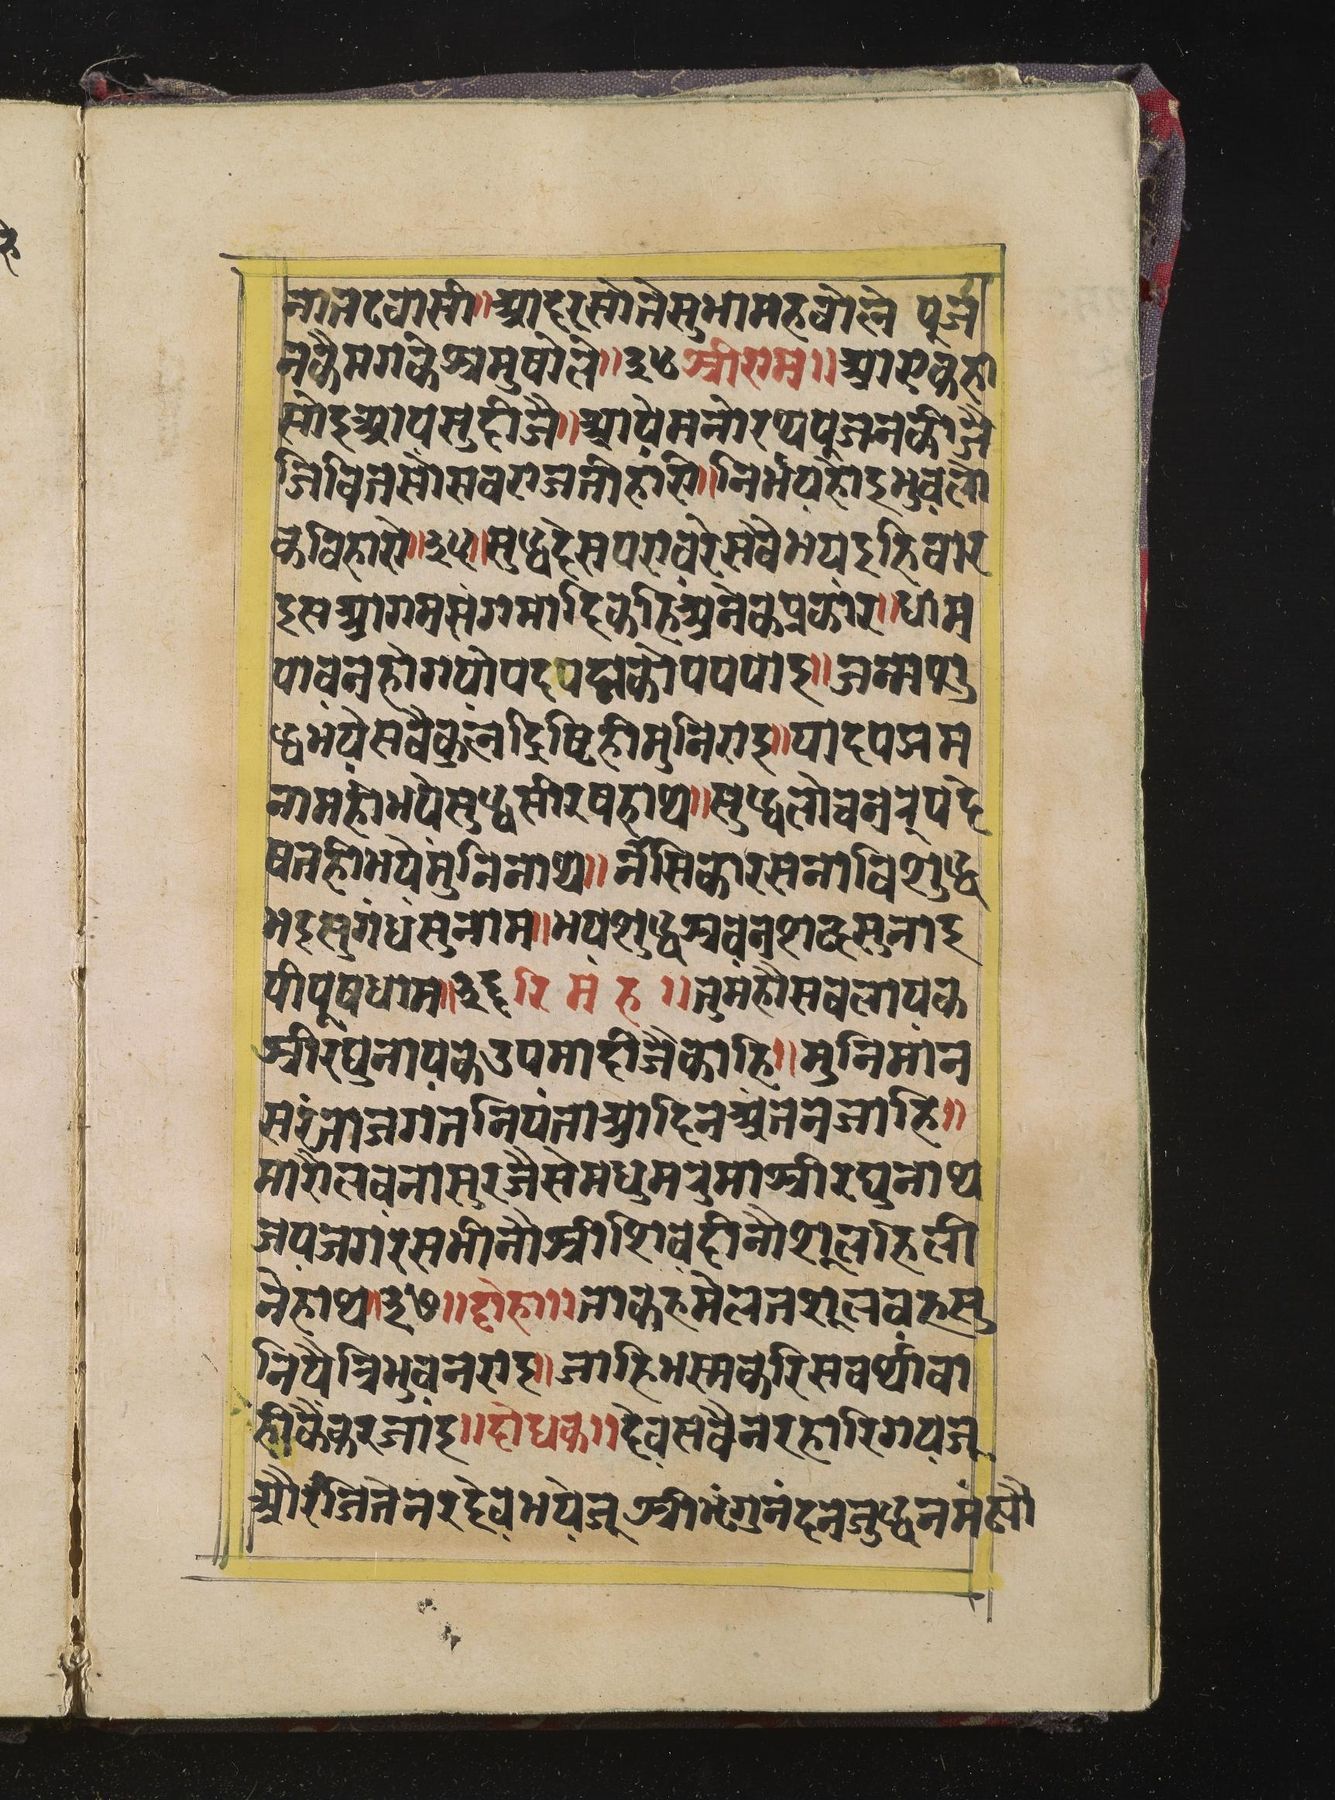 नातढवासी॥ आदरसौतैसुभामहबोले पूज
नकैमगकेश्रमुषोले॥३४ श्रीराम॥ आएकहा
सोइआपसुदीजै॥ आपेमनोरथपूजनकीजै
जिवितसौसबराजतीहारो॥ निर्भयहोइभुवलो
कबिहारो॥३५॥सुद्धदेसपरावरेसवैभयइहिबार
इसआगमसंगमाहिकहिअनेकप्रकार॥ धाम
पावनहोगयोपदपद्मकोपयपाइ॥ जन्मशु
द्धभयेसवैकुलदिष्टिहीमुनिराइ॥ पादपजम
नामहोभयेसुद्धसीरषहाथ॥ सुद्धलोचनरूपदे
षतहीभयेमुनिनाथ॥ नॅसिकारसनाविशुद्ध
भइसुगंधसुनाम॥ भयशुद्धश्रवनशब्दसुनाइ
पीपूषधाम॥३६ रि मं ह ॥ तुमहौसबलायक
श्रीरघुनायकउपमादीजैकाहि॥ मुनिमान
सरंताजगतनियंताआदिनअंतनजाहि॥
मारौलवनासुरजैसेमधुमरुमाश्रीरघुनाथ
जपजगरसभीनौश्रीशिवदीनौशूलहिली
नेहाथ॥३७॥ दोहा॥ जाकहमेलतशूलवहसु
नियैत्रिभुवनराइ॥ जाहिभस्मकरिसबर्थांवा
हीकैकरजाइ॥ दोधक॥ देवसवैनरहारिगयजू
औरजितेनरदेवभयेजू श्रीभृगुनंदनजुद्धनमंडौ